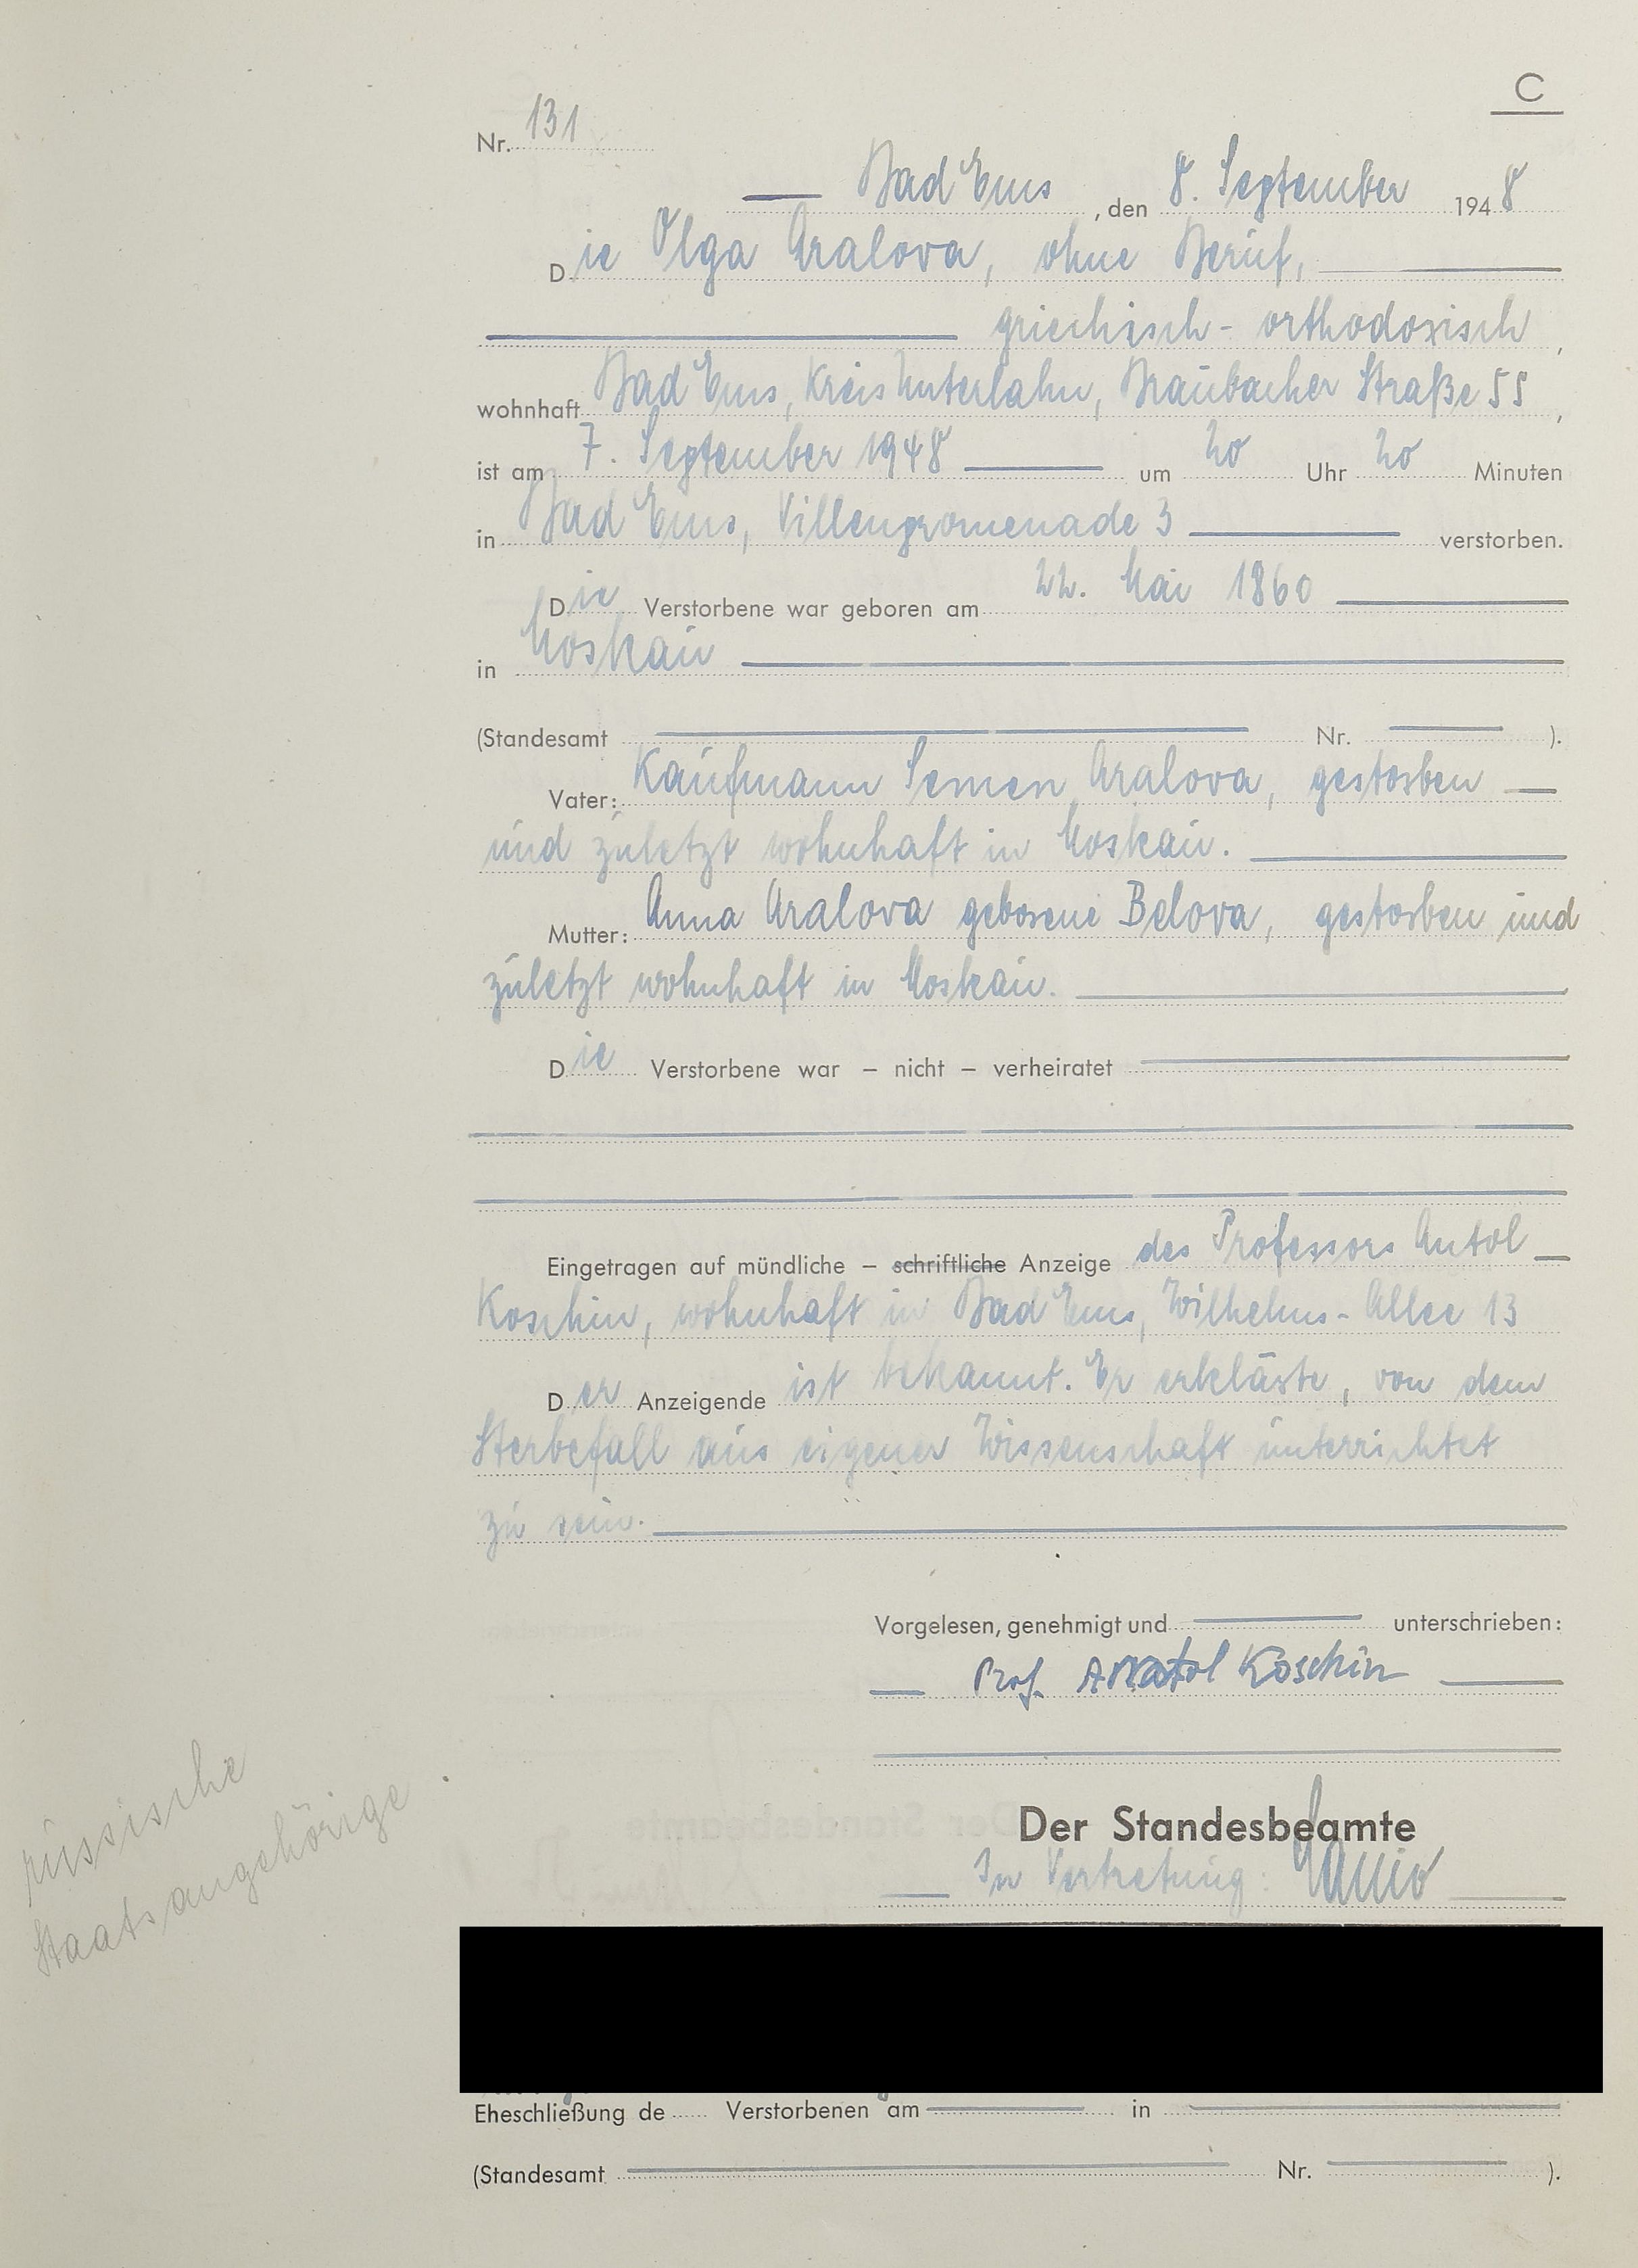 C
Nr. 131
Bad Ems, den 8. September 1948
Die Olga Aralova, ohne Beruf,
griechisch-orthodoxisch,
wohnhaft Bad Ems, Kreis Unterlahn, Braubacher Straße 55,
ist am 7. September 1948 um 20 Uhr 20 Minuten
in Bad Ems, Villenpromenade 3 verstorben.
Die Verstorbene war geboren am 22. Mai 1860
in Moskau
(Standesamt Nr. ).
Vater: Kaufmann Semen Aralova, gestorben
und zuletzt wohnhaft in Moskau.
Mutter: Anna Aralova geborene Belova, gestorben und
zuletzt wohnhaft in Moskau.
Die Verstorbene war – nicht – verheiratet
Eingetragen auf mündliche – schriftliche Anzeige des Professors Antol
Koschin, wohnhaft in Bad Ems, Wilhelms-Allee 13
Der Anzeigende ist bekannt. Er erklärte, von dem
Sterbefall aus eigener Wissenschaft unterrichtet
zu sein.
Vorgelesen, genehmigt und unterschrieben:
Prof. Anatol Koschin
Der Standesbeamte
In Vertretung:
russische
Staatsangehörige
Eheschließung de Verstorbenen am in
(Standesamt Nr. ).